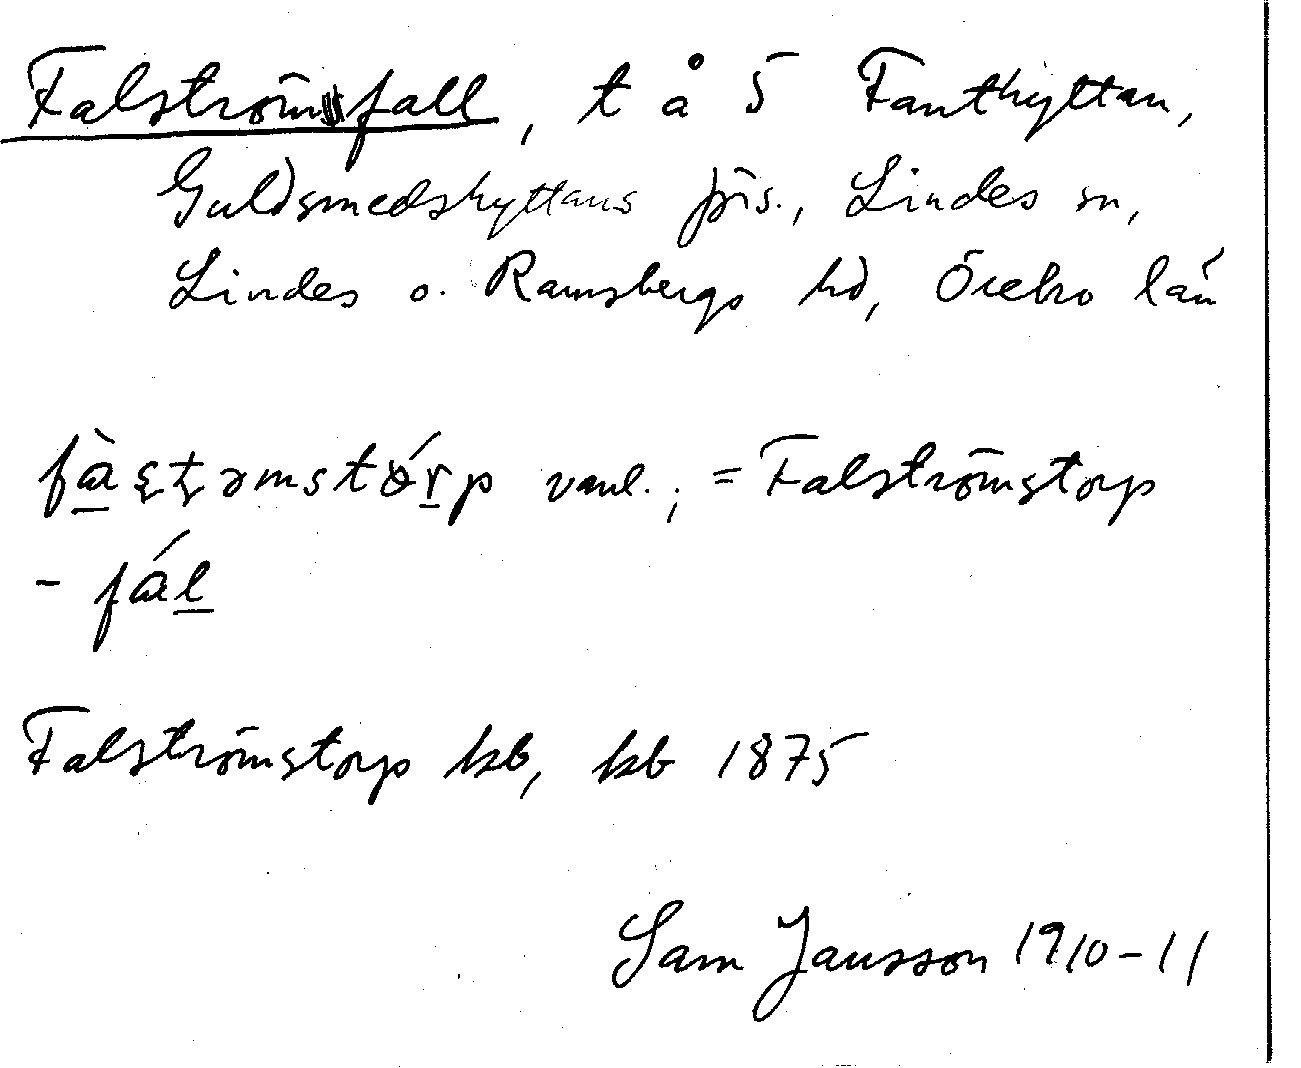 Falströmsfall, t å S Fanthyttan,
Guldsmedshyttans förs., Lindes sn,
Lindes o. Ramsbergs hd, Örebro län
vanl.; = Falströmstorp
- fál
Falströmstorp hb, kb 1875
Sam Jansson 1910-11